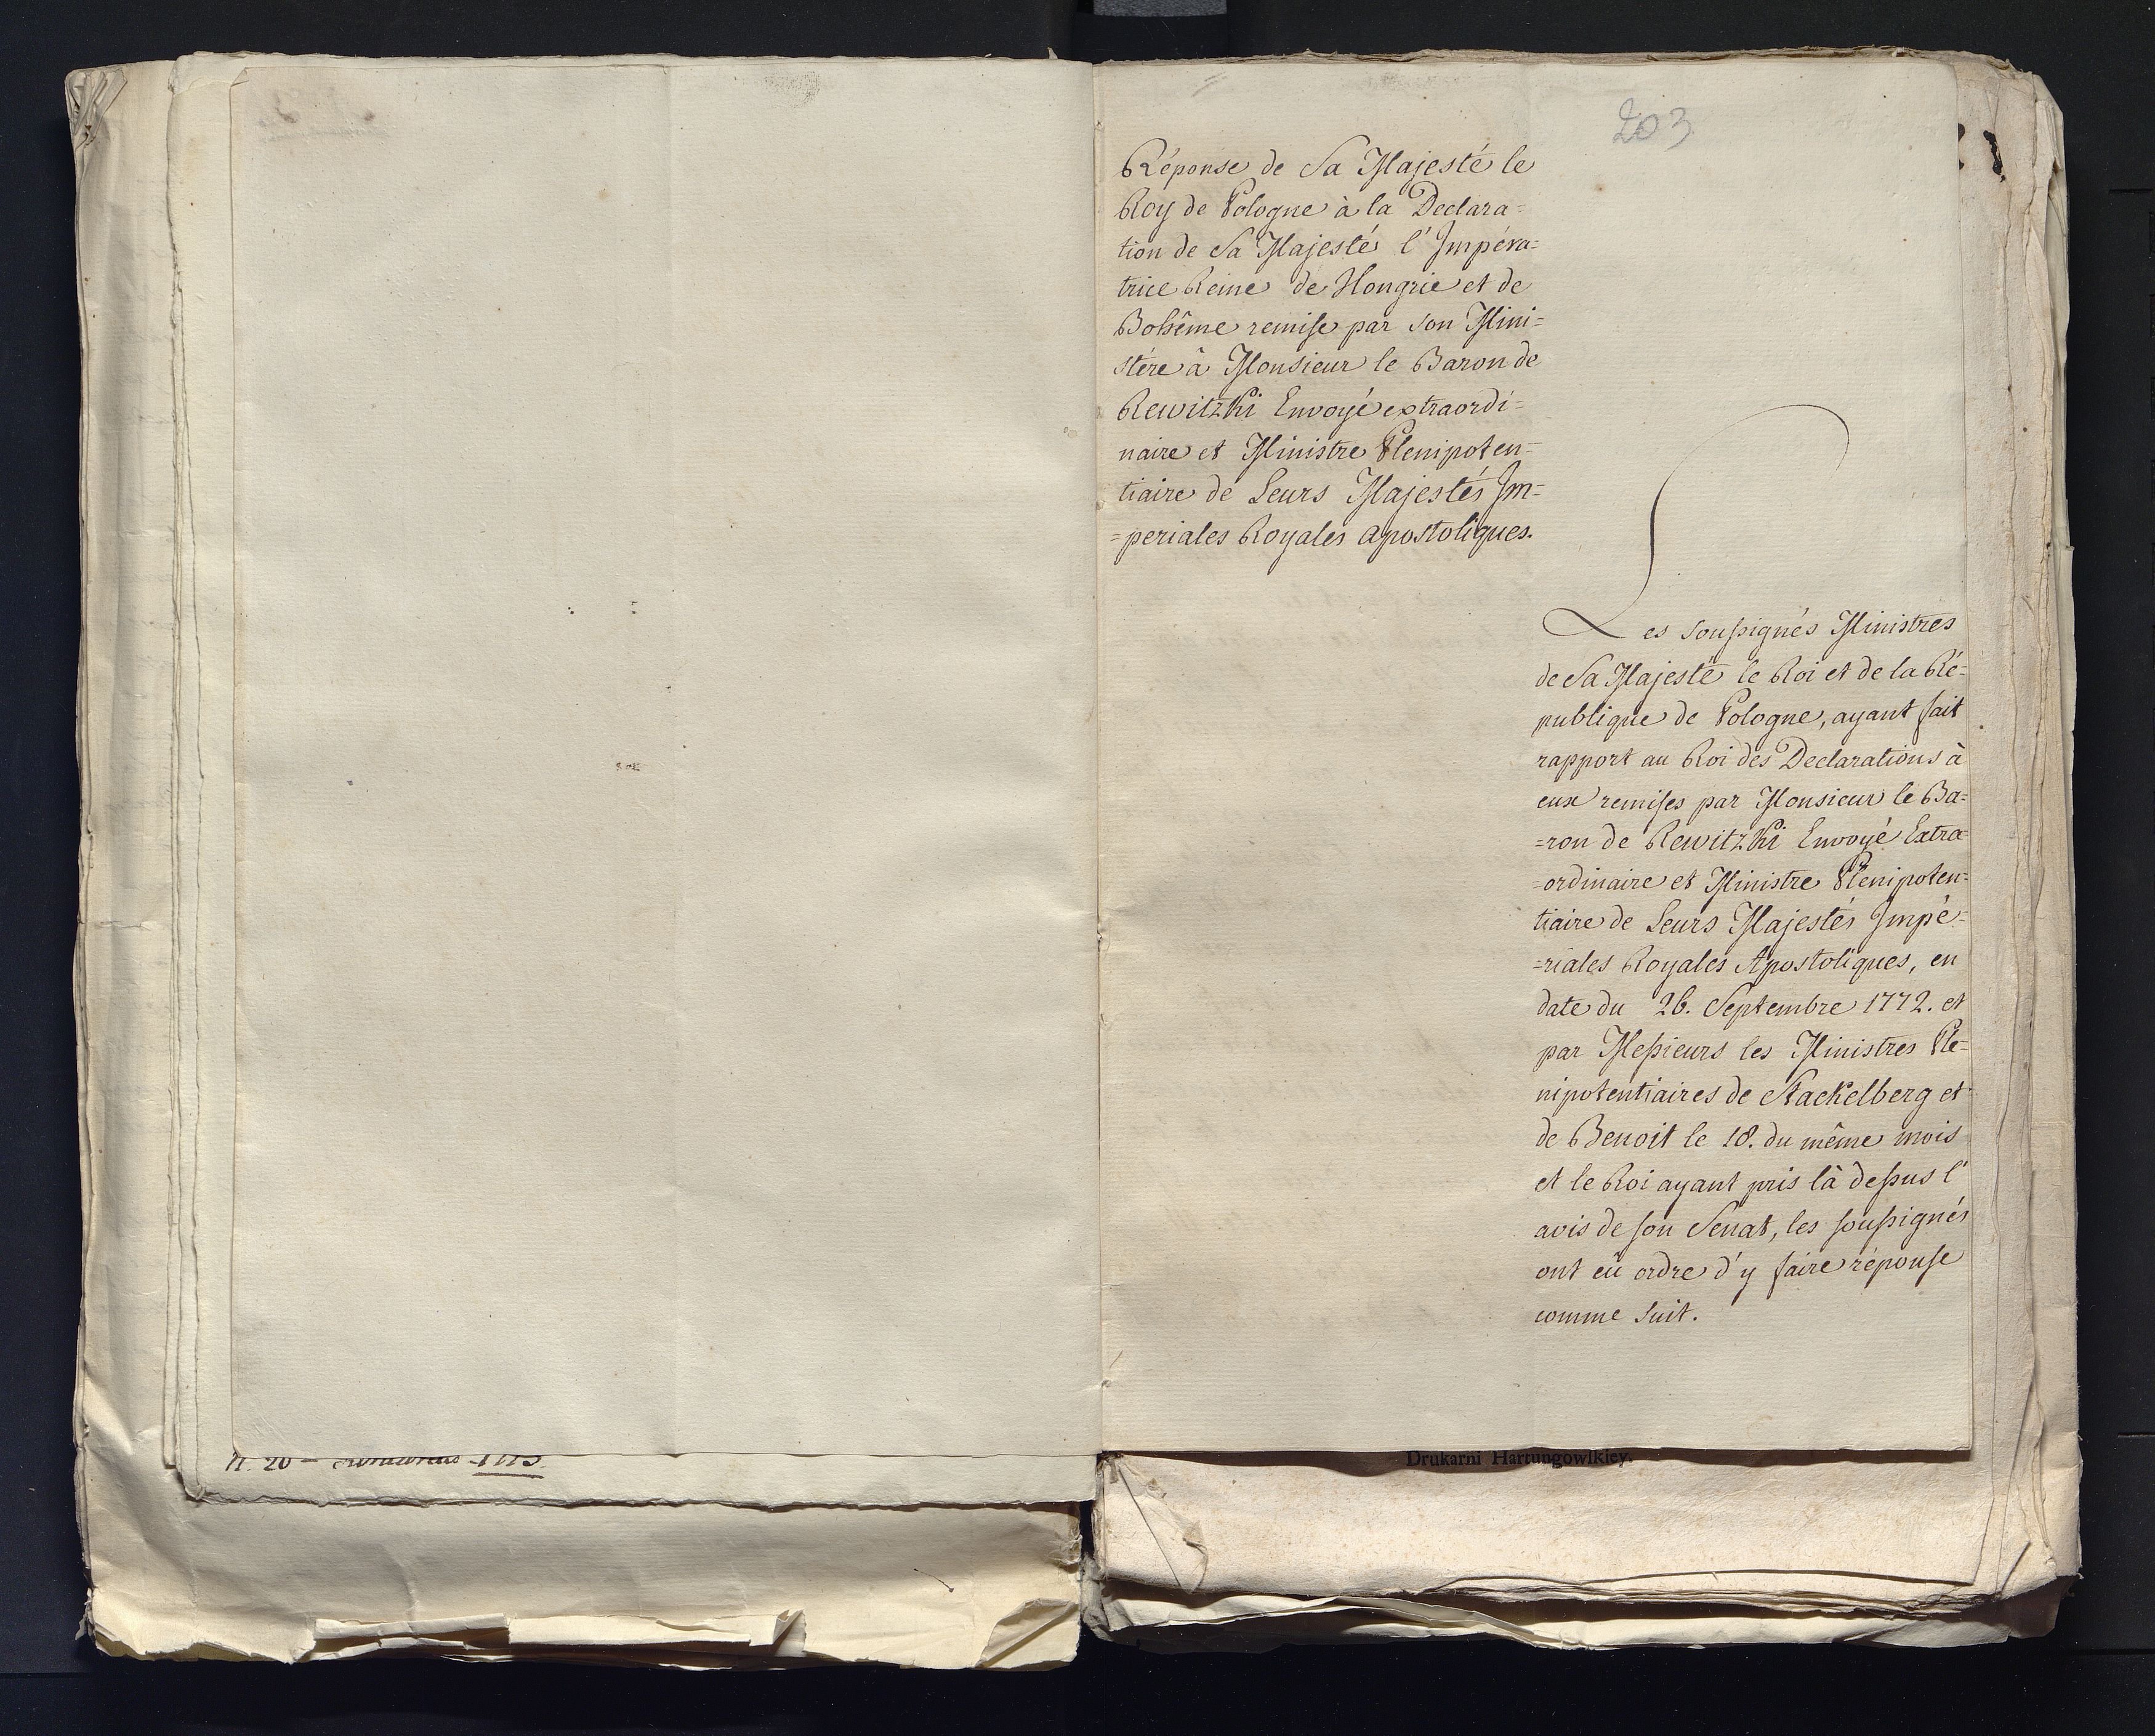 203
Réponse de Sa Majesté le
Roy de Pologne à la Declara=
tion de Sa Majesté l'Impéra=
trice Reine de Hongrie et de
Bohême remise par son Mini=
stére à Monsieur le Baron de
Rewitzki Envoyé extraordi=
naire et Ministre Plenipoten=
tiaire de Leurs Majestés Im=
=periales Royales apostoliques.
Les soussignés Ministres
de Sa Majesté le Roi et de la Ré=
publique de Pologne, ayant fait
rapport au Roi des Declarations à
eux remises par Monsieur le Ba=
=ron de Rewitzki Envoyé Extra
=ordinaire et Ministre Plenipoten=
tiaire de Leurs Majestés Impé=
=riales Royales Apostoliques, en
date du 26. Septembre 1772. et
par Messieurs les Ministres Ple=
nipotentiaires de Stackelberg et
de Benoit le 18. du même mois
et le Roi ayant pris là dessus l'
avis de son Senat, les soussignés
ont eû ordre d'y faire réponse
comme suit.
Drukarni Hartungowskiey.